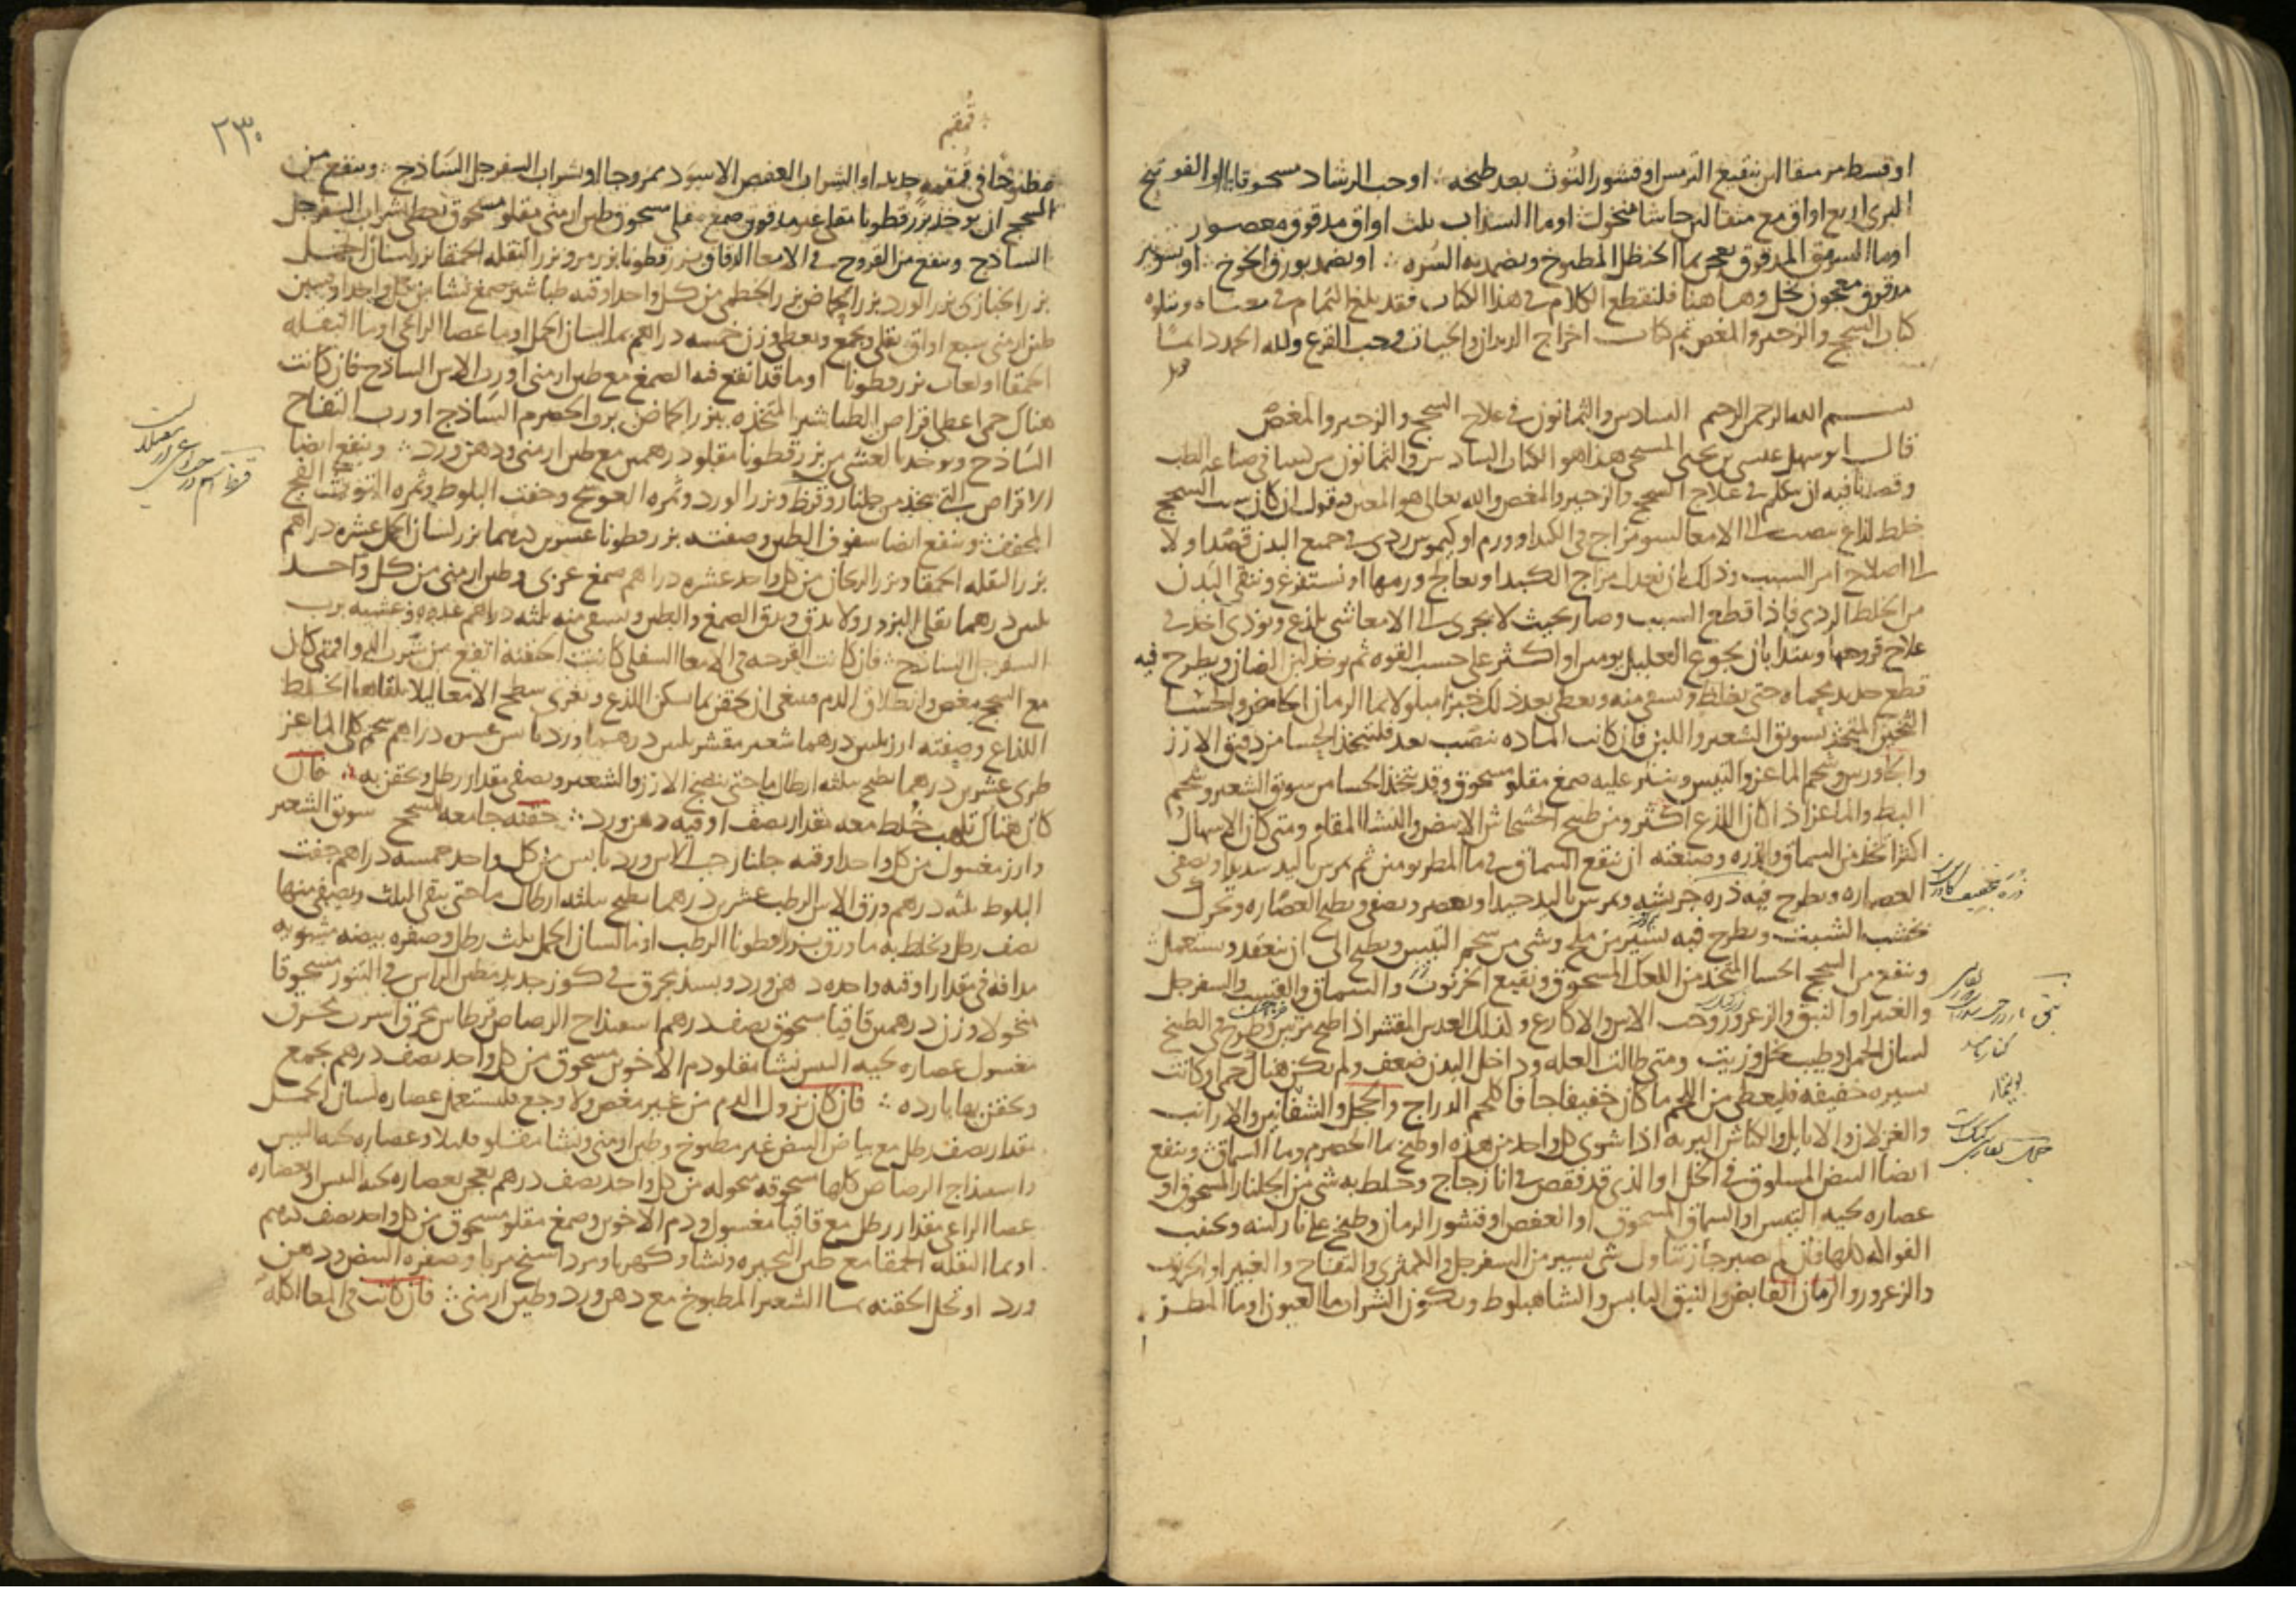 او قسط مر سقا من نقيع الترمس او قشور التوث بعد طبخه او حب الرشاد مسحوقا بالو الفوتنج
البرى اربع اواق مع مثقالين حاشا منخول او ما السذاب ثلث اواق مدقوق معصور
او ما السومق المدقوق يعجن بما الحنظل المطبوخ ويضمد به السره او يضمد بورق الخوخ او شونيز
مدقوق معجون بخل وها هنا فلنقطع الكلام في هذا الكتاب فقد بلغ التمام في معناه ويتلوه
كتاب السحج والزحير والمغص تم كتاب اخراج الديدان والحيات وحب القرع ولله الحمد دائما
بسم الله الرحمن الرحيم السادس والثمانون في علاج السحج والزحير والمغص
قال ابو سهل عيسى بن يحيى المسيحي هذا هو الكتاب السادس والثمانون من كتبنا في صناعه الطب
وقصدنا فيه ان نتكلم في علاج السحج والزحير والمغص والله تعالى هو المعين فنقول ان كان سبب السحج
خلط لذاع ينصب الى الامعا لسو مزاج في الكبد او ورم او كيموس ردي في جميع البدن قصد اولا
الى اصلاح امر السبب وذلك ان يعدل مزاج الكبد او يعالج ورمها او يستفرغ وينقى البدن
من الخلط الردي فاذا قطع السبب وصار بحيث لا يجرى الى الامعا شي يلذع ويوذي اخذ في
علاج قروحها ويبتدا بان يجوع العليل يومين او اكثر على حسب القوه ثم يوخذ لبن الضان ويطرح فيه
قطع حديد محماه حتى يغلظ ويسقى منه ويعطى بعد ذلك خبزا مبلولا بما الرمان الحامض والحسا
الثخين المتخذ بسويق الشعير واللبن فان كانت الماده تنصب بعد فليتخذ الحسا من دقيق الارز
والجاورس وشحم الماعز والتيس وينثر عليه صمغ مقلو مسحوق وقد يتخذ الحسا من سويق الشعير وشحم
البط والماعز اذا كان اللذع اكثر ومن طبيخ الخشخاش الابيض والنشا المقلو ومتى كان الاسهال
اكثر اتخذ من السماق والذره وصنعته ان ينقع السماق في ما المطر يومين ثم يمرس باليد شديدا ويصفى
العصاره ويطرح فيه ذره جريشه ويمرس باليد جيدا ويعصر ويصفى ويطبخ العصاره ويحرك
بخشب الشبث ويطرح فيه يسير من ملح وشي من شحم التيس ويطبخ الى ان ينعقد ويستعمل
وينفع من السحج الحسا المتخذ من الكعك المسحوق ونقيع الخرنوب والسماق والقسب والسفرجل
والغبيرا والنبق والزعرور وحب الاس والاكارع وكذلك العدس المقشر اذا طبخ مرتين وطرح في الطبيخ
لسان الحمل وطيب بخل وزيت ومتى طالت العله وداخل البدن ضعف ولم يكن هناك حمى او كانت
يسيره خفيفه فليعطى من اللحم ما كان خفيفا جافا كلحم الدراج والحجل والشفانين والارانب
والغزلان والايايل والكباش البريه اذا شوى كل واحد من هذه او طبخ بما الحصرم وما السماق وينفع
ايضا البيض المسلوق في الخل او الذي قد فقص في انا زجاج وخلط به شي من الجلنار المسحوق او
عصاره لحيه التيس او السماق المسحوق او العفص او قشور الرمان وطبخ على نار لينه ويجنب
الفواكه كلها فان لم يصبر جاز تناول شي يسير من السفرجل والكمثرى والتفاح والغبيرا والخرنوب
والزعرور والرمان القابض والنبق اليابس والشاهبلوط ويكون الشراب ما العيون او ما المطر
٢٣٠
قمقم
مطبوخا في قمقمه جديد او الشراب العفص الاسود ممزوجا او شراب السفرجل الساذج وينفع من
السحج ان يوخذ بزرقطونا مقلى غير مدقوق صمغ مقلى مسحوق طين ارمنى مقلو مسحوق يعطى بشراب السفرجل
الساذج وينفع من القروح في الامعا الدقاق بزرقطونا بزر مرو بزر البقله الحمقا بزر لسان الحمل
بزر الخبازى بزر الورد بزر الحماض بزر الخطمى من كل واحد اوقيه طباشير صمغ نشا من كل واحد اوقيتين
طين ارمنى سبع اواق يقلى ويجمع ويعطى وزن خمسه دراهم بما لسان الحمل او ما عصا الراعى او ما البقله
الحمقا او لعاب بزرقطونا او ما قد انقع فيه الصمغ مع طين ارمنى او رب الاس الساذج فان كانت
هناك حمى اعطى اقراص الطباشير المتخذه ببزر الحماض برب الحصرم الساذج او رب التفاح
الساذج ويوخذ بالعشى من بزرقطونا مقلو درهمين مع طين ارمنى ودهن ورد وينفع ايضا
الاقراص التي تتخذ من جلنار وقرظ وبزر الورد وثمره العوسج وجفت البلوط وثمره التوت الفج
المجفف وينفع ايضا سفوف الطين وصفته بزرقطونا عشرين درهما بزر لسان الحمل عشره دراهم
بزر البقله الحمقا وبزر الريحان من كل واحد عشره دراهم صمغ عربى وطين ارمنى من كل واحد
ثلثين درهما يقلى البزور ولا يدق ويدق الصمغ والطين ويسقى منه ثلثه دراهم غدوه وعشيه برب
السفرجل الساذج فان كانت القرحه في الامعا السفلى كانت الحقنه انفع من شرب الدوا فمتى كان
مع السحج مغص وانطلاق الدم فينبغى ان يحقن بما يسكن اللذع ويغرى سطح الامعا ليلا يلقاها الخلط
اللذاع وصفته ارز ثلثين درهما شعير مقشر ثلثين درهما ورد يابس عشره دراهم شحم كلى الماعز
طرى عشرين درهما يطبخ بثلثه ارطال ما حتى ينضج الارز والشعير ويصفى مقدار رطل ويحقن به فان
كان هناك تلهب خلط معه مقدار نصف اوقيه دهن ورد حقنه جامعه للسحج سويق الشعير
وارز مغسول من كل واحد اوقيه جلنار حب الاس ورد يابس من كل واحد خمسه دراهم جفت
البلوط ثلثه درهم ورق الاس الرطب عشرين درهما يطبخ بثلثه ارطال ما حتى يبقى الثلث ويصفى منها
نصف رطل ويخلط به ما ورق بزرقطونا الرطب او ما لسان الحمل ثلث رطل وصفره بيضه مشويه
مدافه في مقدار اوقيه واحده دهن ورد وبسد يحرق في كوز جديد مطين الراس في التنور مسحوقا
منخولا وزن درهمين قاقيا مسحوق نصف درهم اسفيذاج الرصاص قرطاس محرق اسرب محرق
مغسول عصاره لحيه التيس نشا مقلو دم الاخوين مسحوق من كل واحد نصف درهم يجمع
ويحقن بها بارده فان كان نزول الدم من غير مغص ولا وجع فليستعمل عصاره لسان الحمل
مقدار نصف رطل مع بياض البيض غير مطبوخ وطين ارمنى ونشا مقلو قليلا وعصاره لحيه التيس
واسفيذاج الرصاص كلها مسحوقه منخوله من كل واحد نصف درهم يعجن بعصاره لحيه التيس او بعصاره
عصا الراعى مقدار رطل مع قاقيا مغسول ودم الاخوين وصمغ مقلو مسحوق من كل واحد نصف درهم
او بما البقله الحمقا مع طين البحيره ونشا وكهربا ومرداسنج مربا وصفره البيض ودهن
ورد او تحل الحقنه بما الشعير المطبوخ مع دهن ورد وطين ارمنى فان كانت في المعا اكله